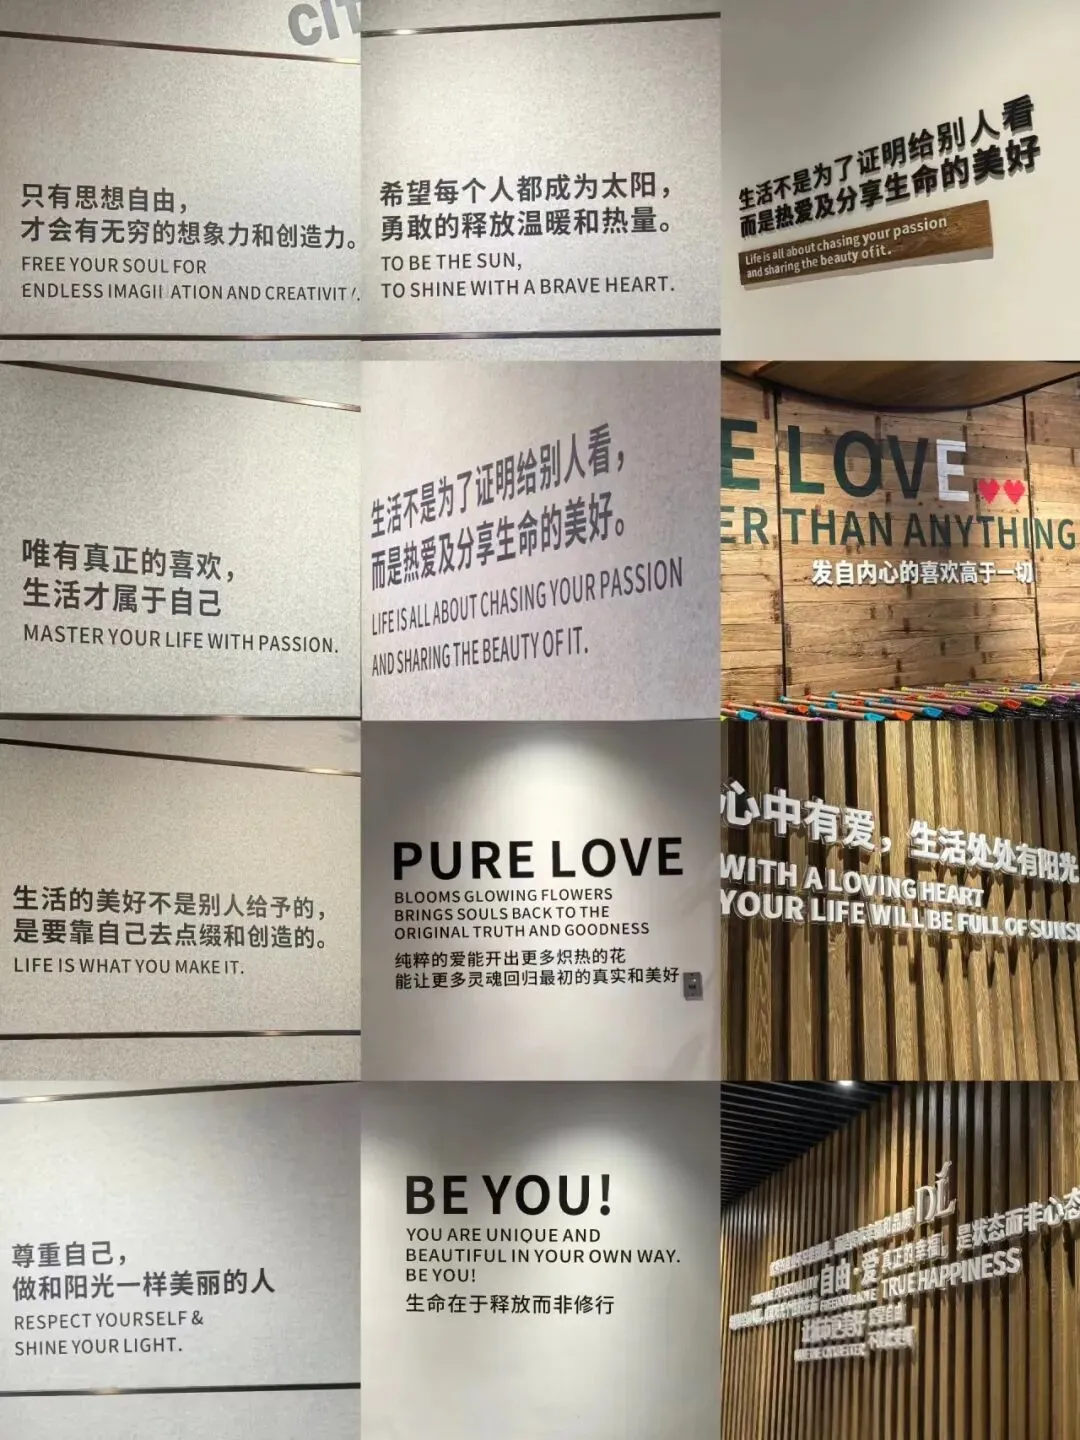 CIT
只有思想自由，
才会有无穷的想象力和创造力。
FREE YOUR SOUL FOR
ENDLESS IMAGII ATION AND CREATIVIT
希望每个人都成为太阳，
勇敢的释放温暖和热量。
TO BE THE SUN,
TO SHINE WITH A BRAVE HEART.
生活不是为了证明给别人看
而是热爱及分享生命的美好
Life is all about chasing your passion
and sharing the beauty of it.
唯有真正的喜欢，
生活才属于自己
MASTER YOUR LIFE WITH PASSION.
生活不是为了证明给别人看，
而是热爱及分享生命的美好。
LIFE IS ALL ABOUT CHASING YOUR PASSION
AND SHARING THE BEAUTY OF IT.
E LOVE
ER THAN ANYTHING
发自内心的喜欢高于一切
生活的美好不是别人给予的，
是要靠自己去点缀和创造的。
LIFE IS WHAT YOU MAKE IT.
PURE LOVE
BLOOMS GLOWING FLOWERS
BRINGS SOULS BACK TO THE
ORIGINAL TRUTH AND GOODNESS
纯粹的爱能开出更多炽热的花
能让更多灵魂回归最初的真实和美好
心中有爱，生活处处有阳光
WITH A LOVING HEART
YOUR LIFE WILL BE FULL OF SUNSH
尊重自己，
做和阳光一样美丽的人
RESPECT YOURSELF &
SHINE YOUR LIGHT.
BE YOU!
YOU ARE UNIQUE AND
BEAUTIFUL IN YOUR OWN WAY.
BE YOU!
生命在于释放而非修行
DL
自由·爱 真正的幸福，是状态而非心态
TRUE HAPPINESS